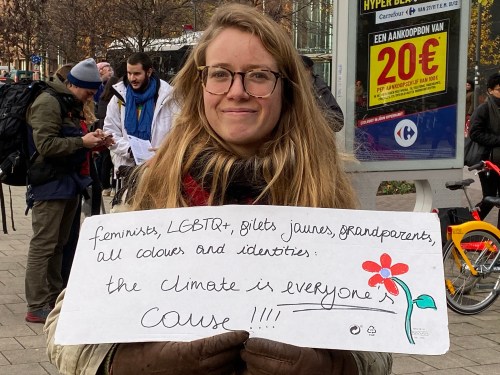 Carrefour
HYPER
EEN AANKOOPBON
VAN
20€
Carrefour
feminists, LGBTQ+, gilets jaunes, grandparents,
all colours and identities:
the climate is everyone's
cause !!!!